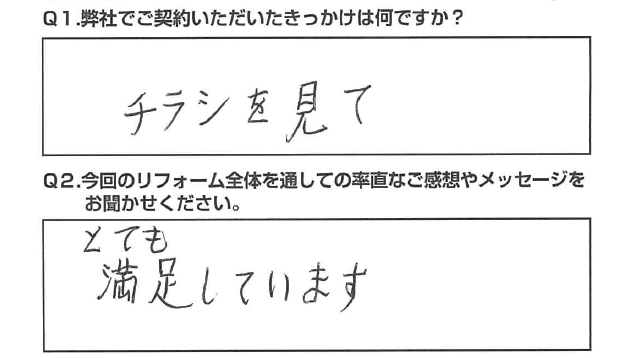 Q1.弊社でご契約いただいたきっかけは何ですか？
チラシを見て
Q2.今回のリフォーム全体を通しての率直なご感想やメッセージを
お聞かせください。
とても
満足しています